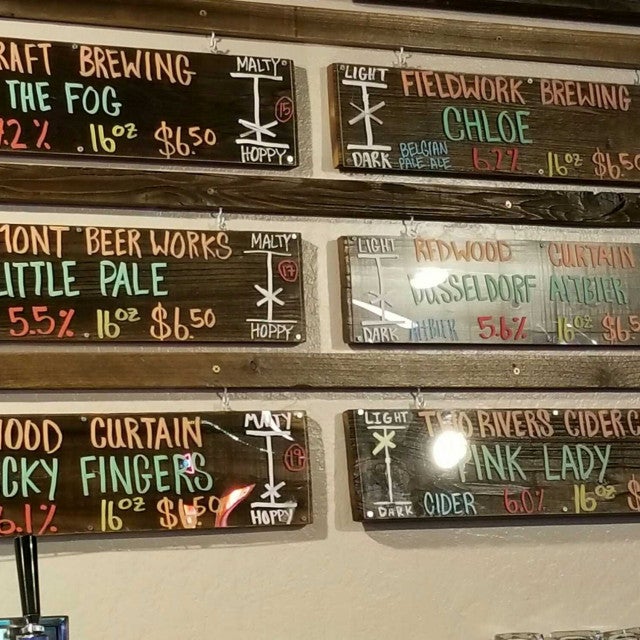 RAFT BREWING
THE FOG
7.2% .16oz $6.50
MALTY
15
HOPPY
LIGHT
DARK
FIELDWORK BREWING
CHLOE
BELGIAN
PALE ALE
6.7% .16oz $6.50
MONT BEER WORKS
LITTLE PALE
5.5% .16oz $6.50
MALTY
17
HOPPY
LIGHT
DARK
REDWOOD CURTAIN
DUSSELDORF ALTBIER
ALTBIER 5.6% 16oz $6.5
WOOD CURTAIN
CKY FINGERS
6.1% 16oz $6.50
MALTY
19
HOPPY
LIGHT
DARK
TWO RIVERS CIDER C
PINK LADY
CIDER 6.0% .16oz $